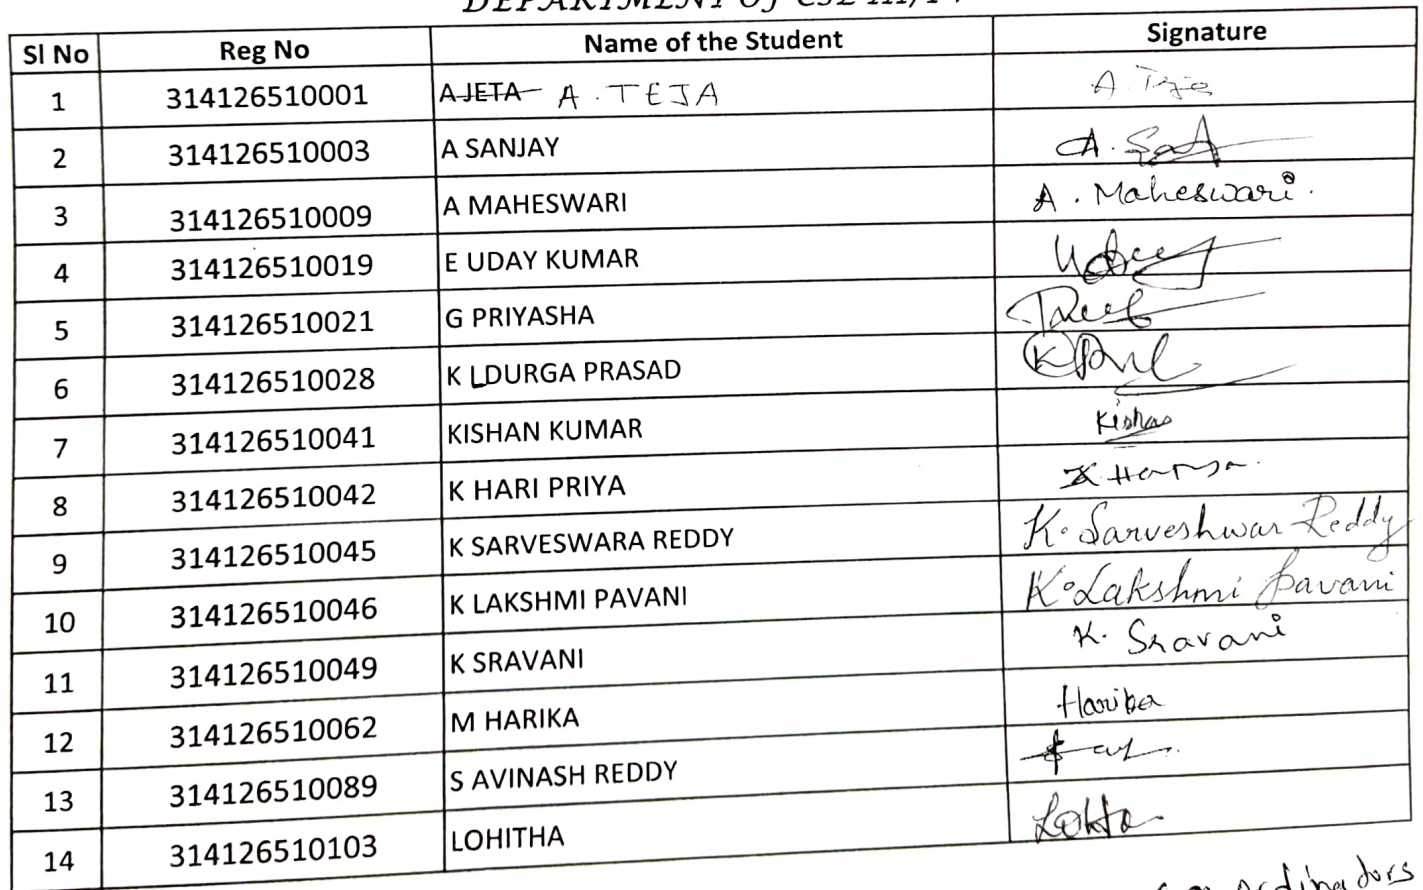 DEPARTMENT Of CSE III/IV
Sl No Reg No Name of the Student Signature
1 314126510001 AJETA A. TEJA A. Teja
2 314126510003 A SANJAY A.
3 314126510009 A MAHESWARI A. Maheswari.
4 314126510019 E UDAY KUMAR
5 314126510021 G PRIYASHA
6 314126510028 K LDURGA PRASAD
7 314126510041 KISHAN KUMAR Kishan
8 314126510042 K HARI PRIYA
9 314126510045 K SARVESWARA REDDY K. Sarveshwar Reddy
10 314126510046 K LAKSHMI PAVANI K. Lakshmi pavani
11 314126510049 K SRAVANI K. Sravani
12 314126510062 M HARIKA Harika
13 314126510089 S AVINASH REDDY
14 314126510103 LOHITHA